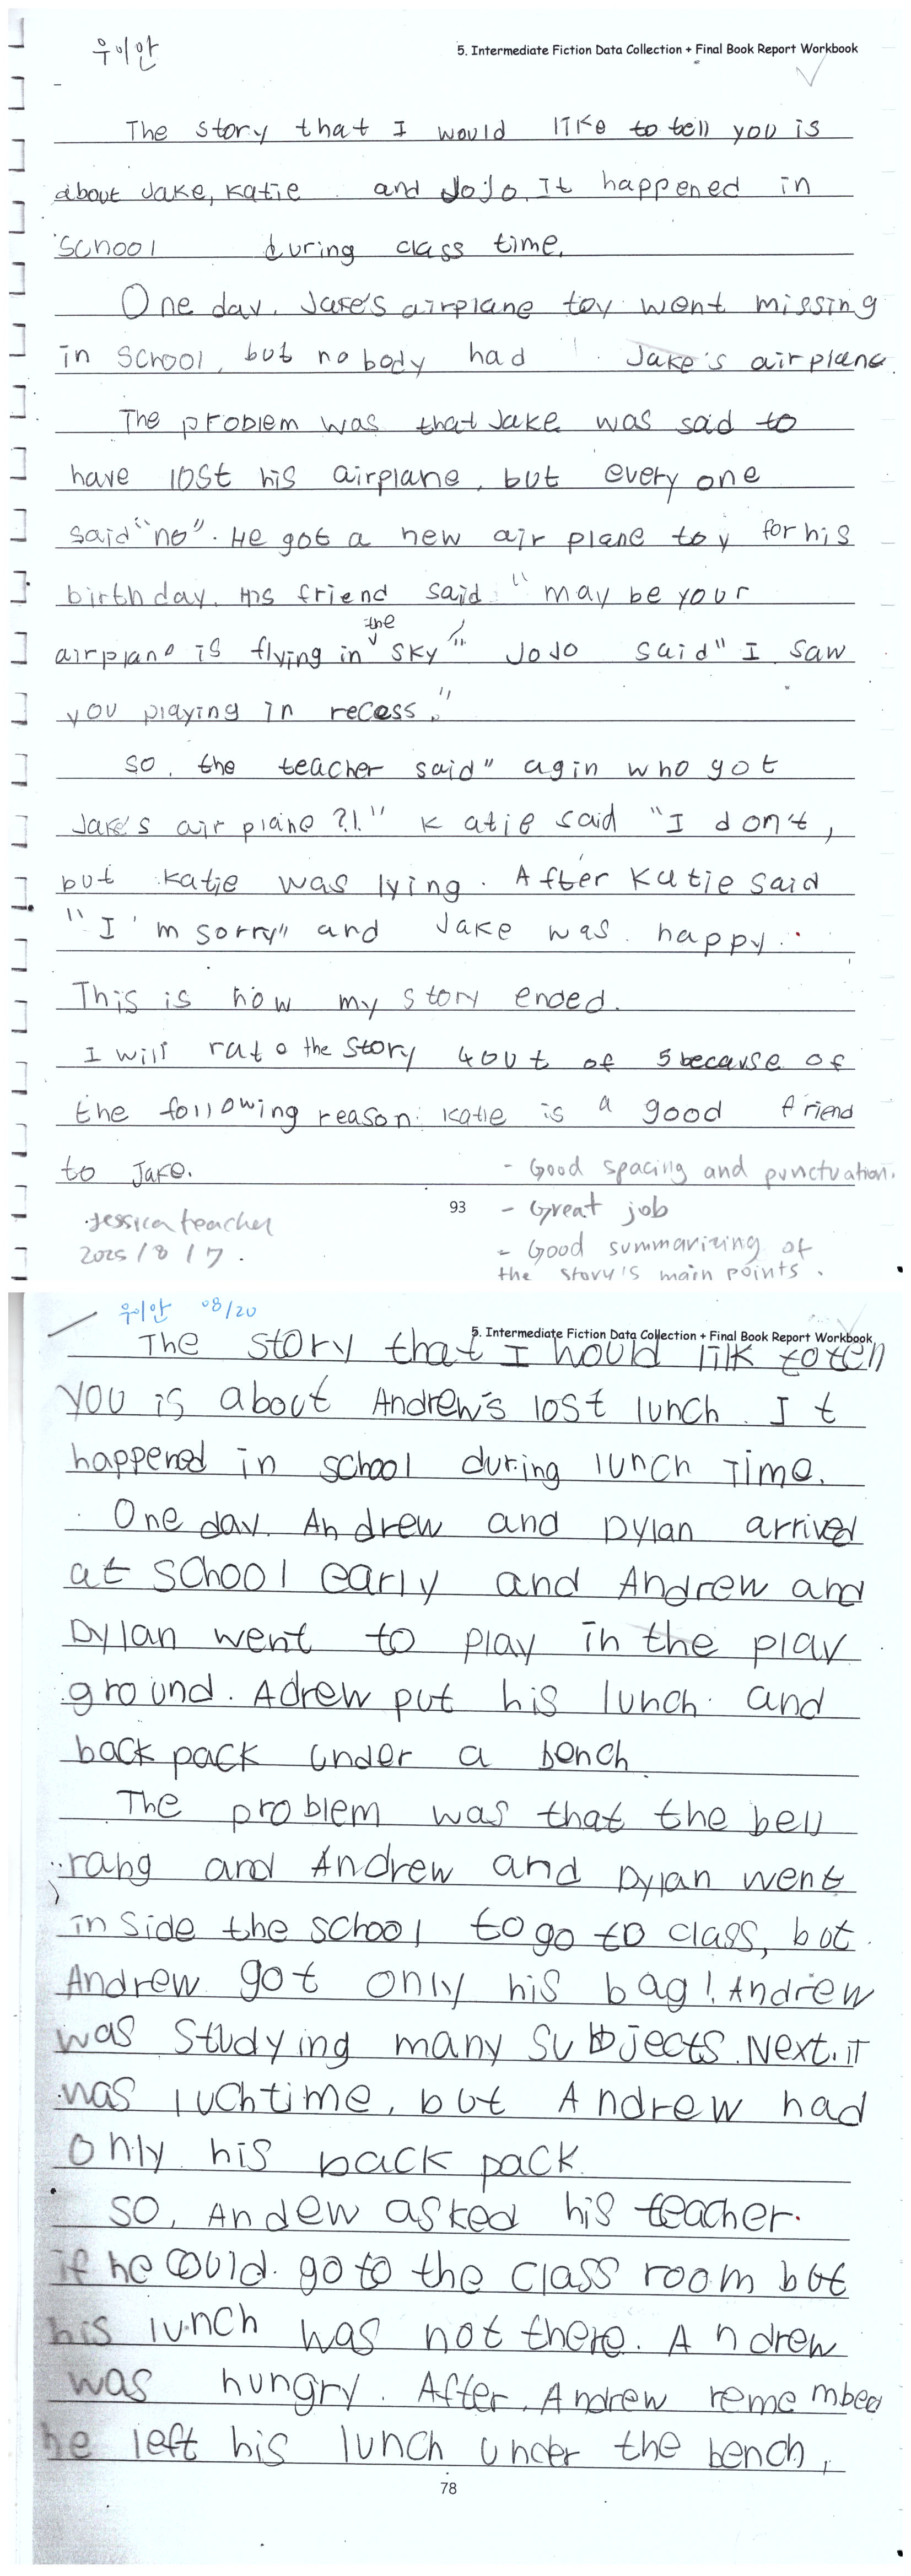 우이안
5. Intermediate Fiction Data Collection + Final Book Report Workbook
The story that I would like to tell you is
about Jake, Katie and JoJo. It happened in
school during class time.
One day, Jake's airplane toy went missing
in school, but nobody had Jake's airplane
The problem was that Jake was said to
have lost his airplane, but every one
said "no". He got a new air plane toy for his
birthday. His friend said "may be your
airplane is flying in the sky" JoJo said "I saw
you playing in recess."
so, the teacher said" agin who got
Jake's air plane?!" Katie said "I don't,
but Katie was lying. After Katie said
"I'm sorry" and Jake was happy.
This is how my story ended.
I will rate the story 4 out of 5 because of
the following reason: Katie is a good friend
to Jake.
- Good spacing and punctuation.
93
- Great job
Jessica teacher
2025/8/7.
- Good summarizing of
the story's main points.
우이안 08/20
5. Intermediate Fiction Data Collection + Final Book Report Workbook
The story that I would lilk to tell
you is about Andrew's lost lunch. It
happened in school during lunch time.
One day, Andrew and Dylan arrived
at school early and Andrew and
Dylan went to play in the play
ground. Adrew put his lunch and
back pack under a bench.
The problem was that the bell
rang and Andrew and Dylan went
inside the school to go to class, but
Andrew got only his bag! Andrew
was studying many subjects. Next, it
was luchtime, but Andrew had
only his back pack.
so, Andew asked his teacher
if he could go to the class room but
his lunch was not there. Andrew
was hungry. After, Andrew remembed
he left his lunch under the bench,
78